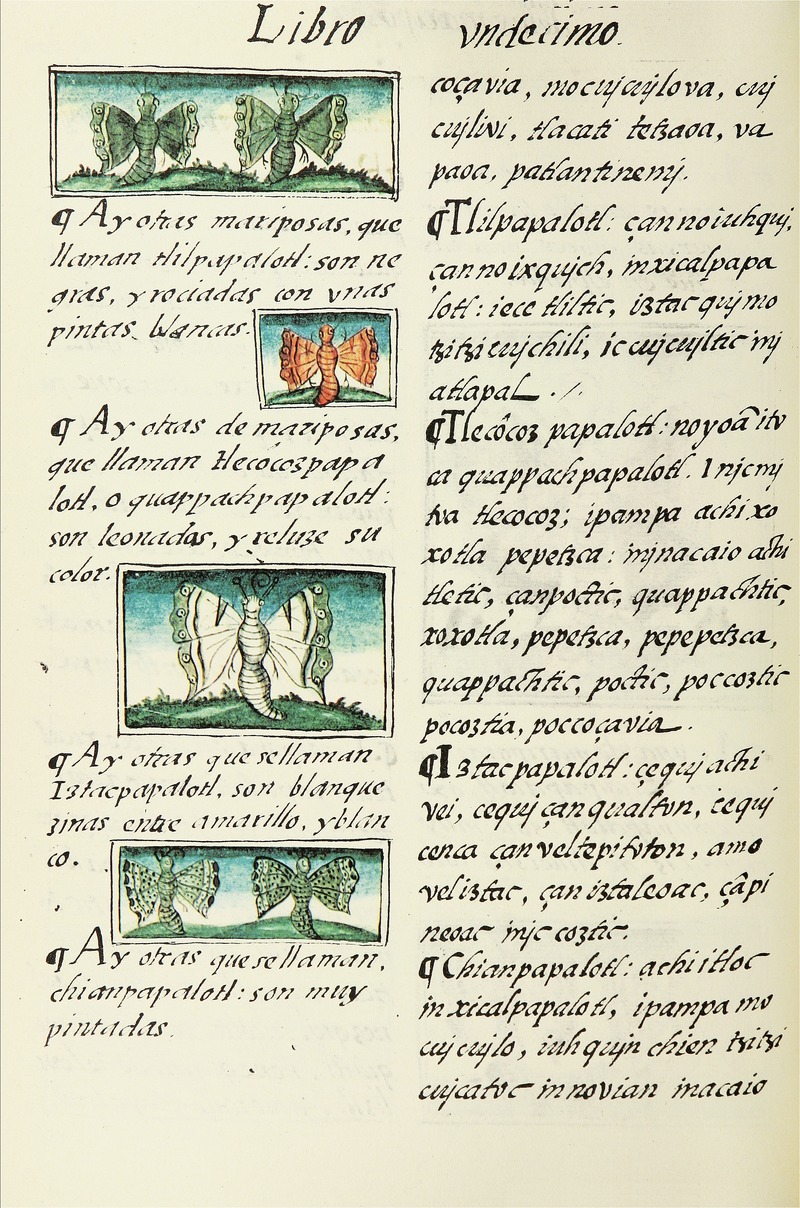 Libro vndecimo.
¶ Ay otras mariposas, que
llaman tlilpapalotl: son ne
gras, y rociadas con vnas
pintas blancas.
¶ Ay otras de mariposas,
que llaman tlecocozpapa
lotl, o quappachpapalotl:
son leonadas, y reluze su
color.
¶ Ay otras que se llaman
Iztacpapalotl, son blanque
zinas entre amarillo, y blan
co.
¶ Ay otras que se llaman,
chianpapalotl: son muy
pintadas.
coçavia, mocujcujlova, cuj
cujlivi, tlacati tetzaoa, va
paoa, patlantinemj.
¶ Tlilpapalotl: çan no iuhquj,
çan no ixqujch, in xicalpapa
lotl: iece tliltic, iztac qujmo
tzitzicujchili, ic cujcujltic inj
atlapal.
¶ Tlecôcoz papalotl: no yoã itv
ca quappachpapalotl. Injc mj
tva tlecocoz; ipampa achi xo
xotla pepetzca: injnacaio achi
tletic, çanpoctic, quappachtic,
xoxotla, pepetzca, pepepetzca,
quappachtic, poctic, poccoztic
pocoztia, poccoçavia.
¶ Iztacpapalotl: cequj achi
vei, cequj çan qualtvn, cequj
cenca çan veltepitvton, amo
veliztac, çan iztaleoac, çã pi
neoac injc coztic.
¶ Chianpapalotl: achi itloc
in xicalpapalotl, ipampa mo
cujcujlo, iuhqujn chien tzitzi
cujcatoc in novian inacaio